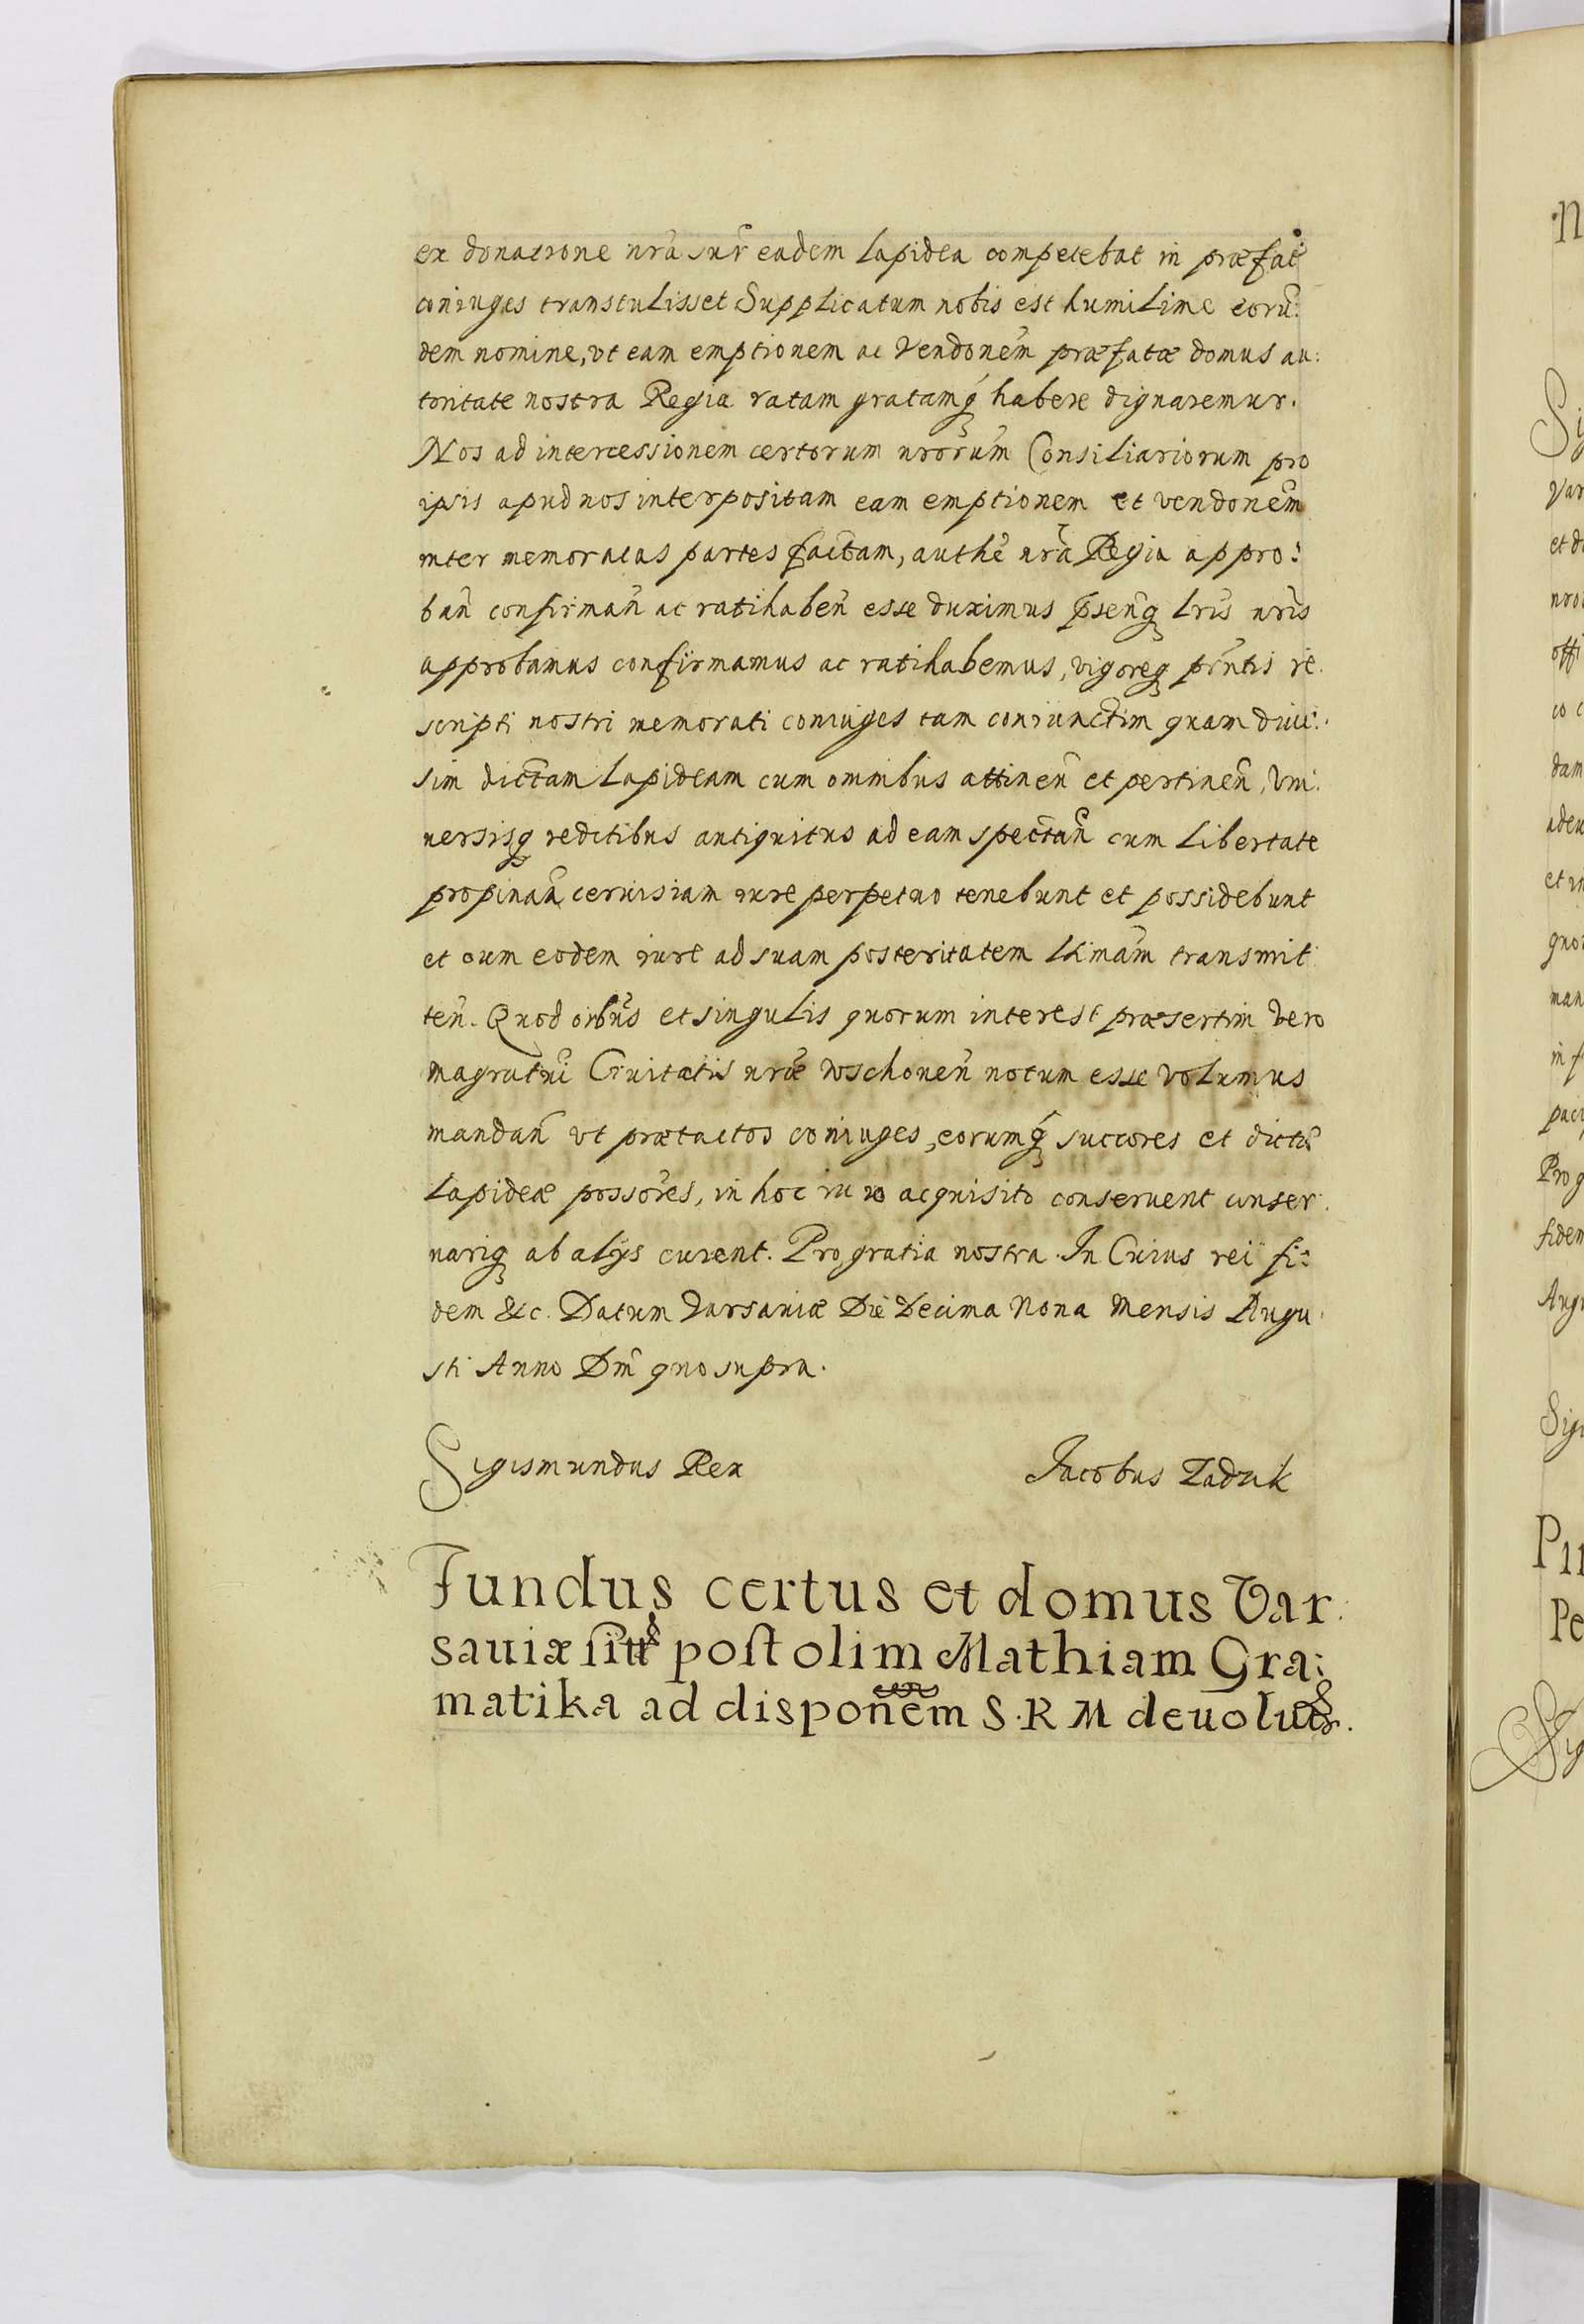 ex donatione nrã sur̃ eadem lapidea competebat in præfat̃
coniuges transtulisset Supplicatum nobis est humilime eorũ:
dem nomine, vt eam emptionem ac Vendonẽm præfatæ domus au:
toritate nostra Regia ratam gratamq́ habere dignaremur.
Nos ad intercessionem certorum nrorũm Consiliariorum pro
ipsis apud nos interpositam eam emptionem et vendonẽm
inter memoratas partes factam, authẽ nrã Regia appro:
bañ confirmañ ac ratihabeñ esse duximus p̃senq̃ lr̃is nr̃is
approbamus confirmamus ac ratihabemus, vigoreq̃ pr̃ntis re
scripti nostri memorati coniuges tam coniunctim quam diui:
sim dictam lapideam cum omnibus attineñ et pertineñ, vni:
uersisq reditibus antiquitus ad eam spectañ cum libertate
propinañ ceruisiam iure perpetuo tenebunt et possidebunt
et cum eodem iure ad suam posteritatem lt̃imam transmit
teñ. Quod oib̃us et singulis quorum interest præsertim vero
magratui Ciuitatis nræ Woschoneñ notum esse volumus
mandañ vt prætactos coniuges, eorumq́ succores et dictæ
lapideæ possores, in hoc iure acquisito conseruent conser:
uariq ab alijs curent. Pro gratia nostra. In Cuius rei fi:
dem &c. Datum Varsauiæ Die Decima Nona Mensis Augu:
sti Anno Dñi quo supra.
Sigismundus Rex Jacobus Zadzik
Fundus certus et domus Var:
sauiæ ſitus poſt olim Mathiam Gra:
matika ad disponẽm S. R M deuolutus.
Sig
Var
et d
nro
offi
co c
dam
adeu
et in
quo
man
in f
paci
Pro g
fidem
Augu
Sigi
Pe
Sig